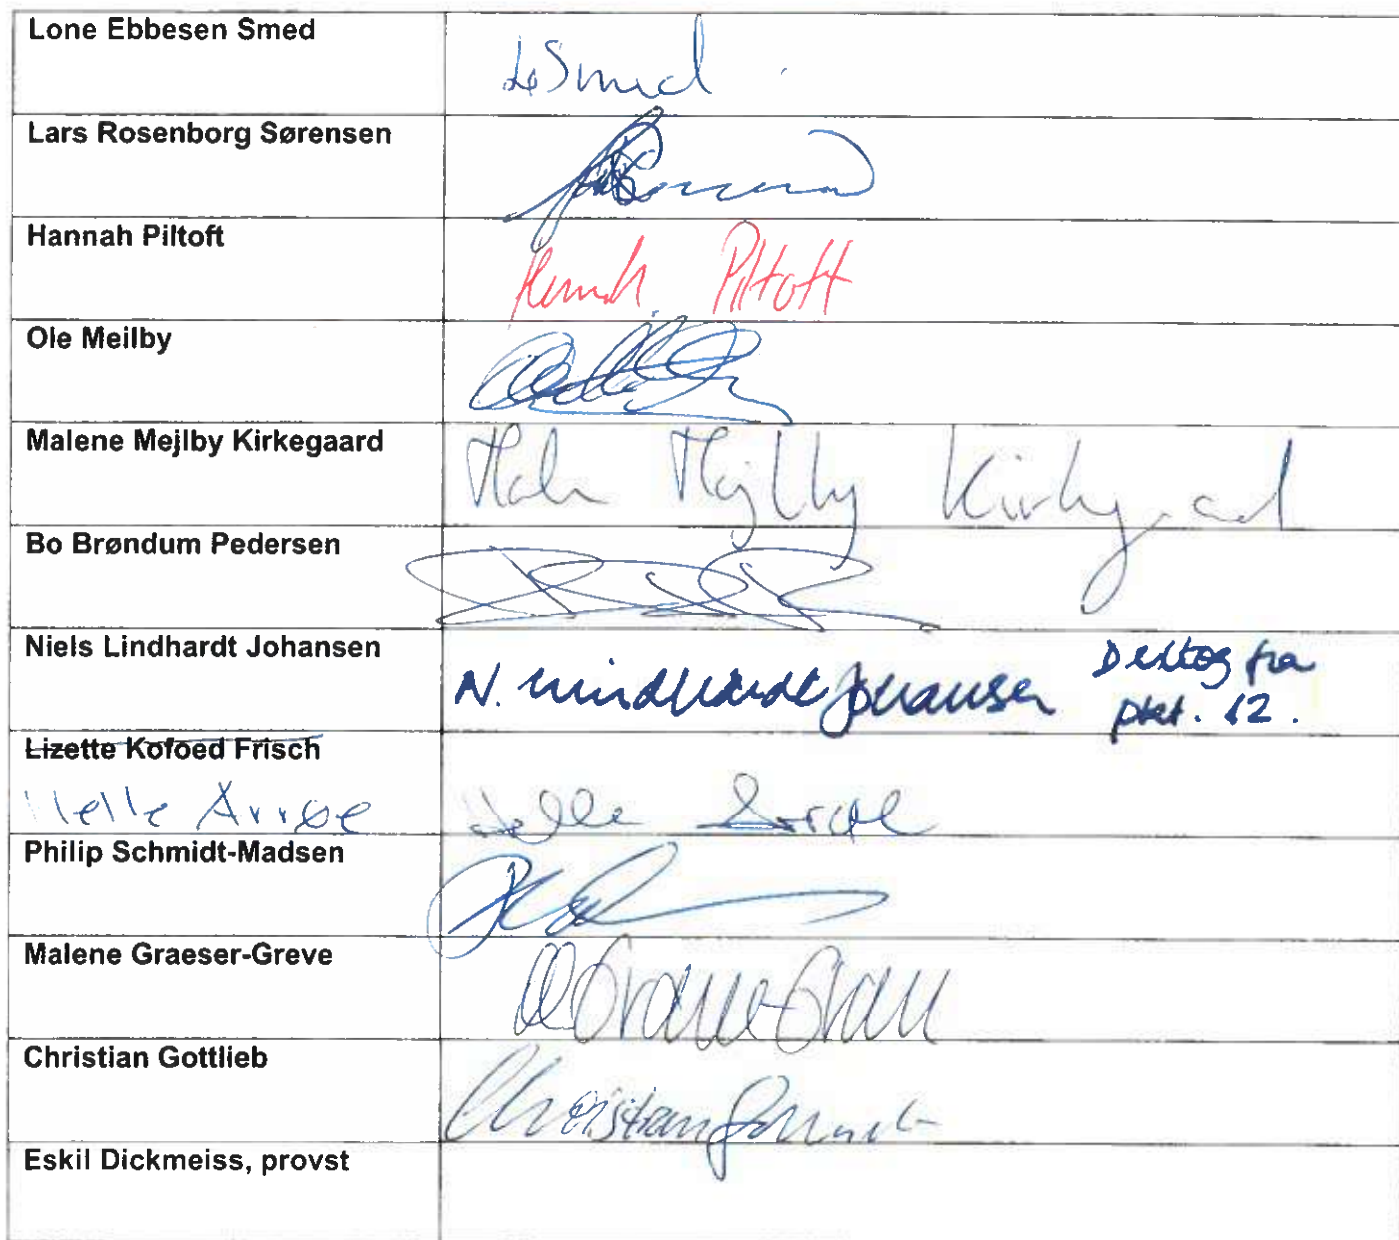 Lone Ebbesen Smed
LSmed
Lars Rosenborg Sørensen
Hannah Piltoft
Hannah Piltoft
Ole Meilby
Malene Mejlby Kirkegaard
Malene Mejlby Kirkegaard
Bo Brøndum Pedersen
Niels Lindhardt Johansen
N. Lindhardt Johansen
Deltog fra
pkt. 12.
Lizette Kofoed Frisch
Helle Arrøe
Helle Arrøe
Philip Schmidt-Madsen
Malene Graeser-Greve
Christian Gottlieb
Christian Gottlieb
Eskil Dickmeiss, provst